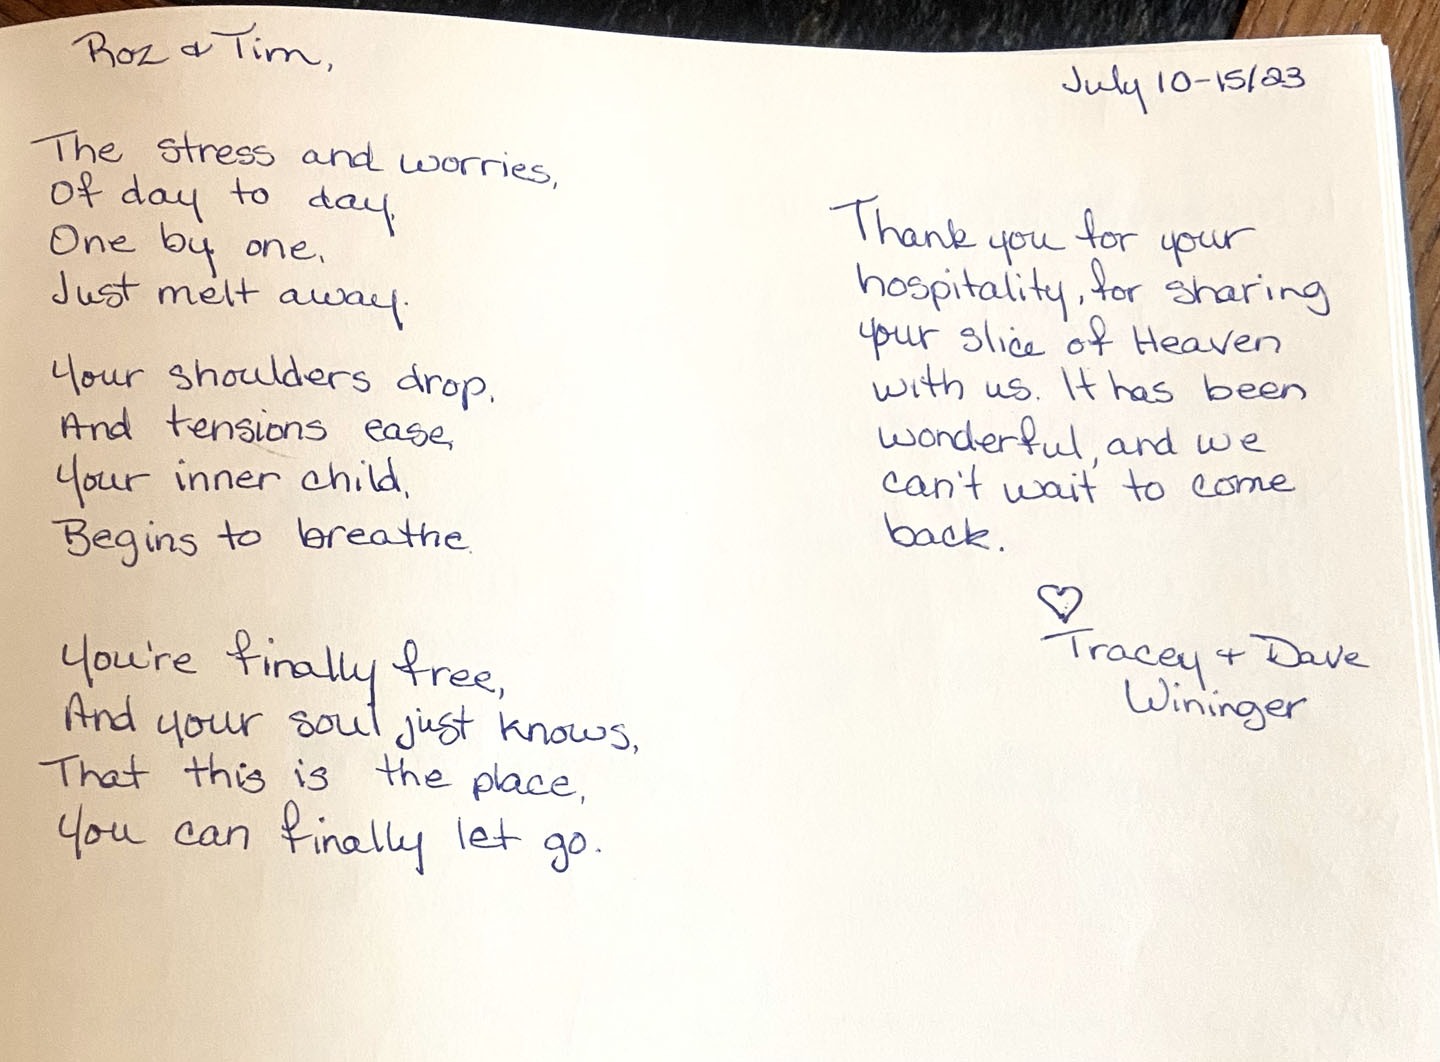 Roz & Tim,
July 10-15/23
The stress and worries,
Of day to day,
One by one,
Just melt away.
Your shoulders drop,
And tensions ease,
Your inner child,
Begins to breathe.
You're finally free,
And your soul just knows,
That this is the place,
You can finally let go.
Thank you for your
hospitality, for sharing
your slice of Heaven
with us. It has been
wonderful, and we
can't wait to come
back.
♡
Tracey + Dave
Wininger